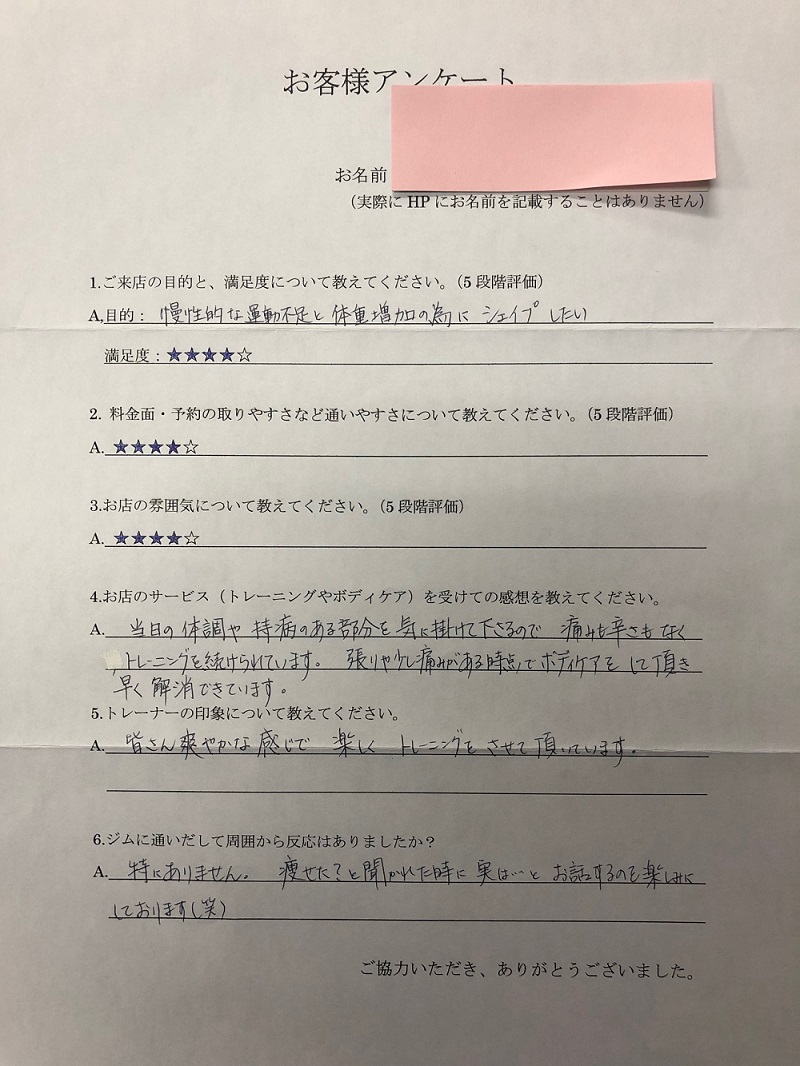 お客様アンケート
お名前
（実際に HP にお名前を記載することはありません）
1.ご来店の目的と、満足度について教えてください。（5 段階評価）
A,目的： 慢性的な運動不足と 体重増加の為に シェイプ したい
満足度：★★★★☆
2. 料金面・予約の取りやすさなど通いやすさについて教えてください。（5 段階評価）
A. ★★★★☆
3.お店の雰囲気について教えてください。（5 段階評価）
A. ★★★★☆
4.お店のサービス（トレーニングやボディケア）を受けての感想を教えてください。
A. 当日の体調や 持病のある部分を 気に掛けて下さるので 痛みも辛さもなく
トレーニングを続けられています。 張りや少し痛みがある時点でボディケアをして頂き
早く解消できています。
5.トレーナーの印象について教えてください。
A. 皆さん爽やかな感じで 楽しく トレーニングを させて頂いています。
6.ジムに通いだして周囲から反応はありましたか？
A. 特にありません。 痩せた？と聞かれた時に 実は…と お話するのを楽しみに
しております（笑）
ご協力いただき、ありがとうございました。